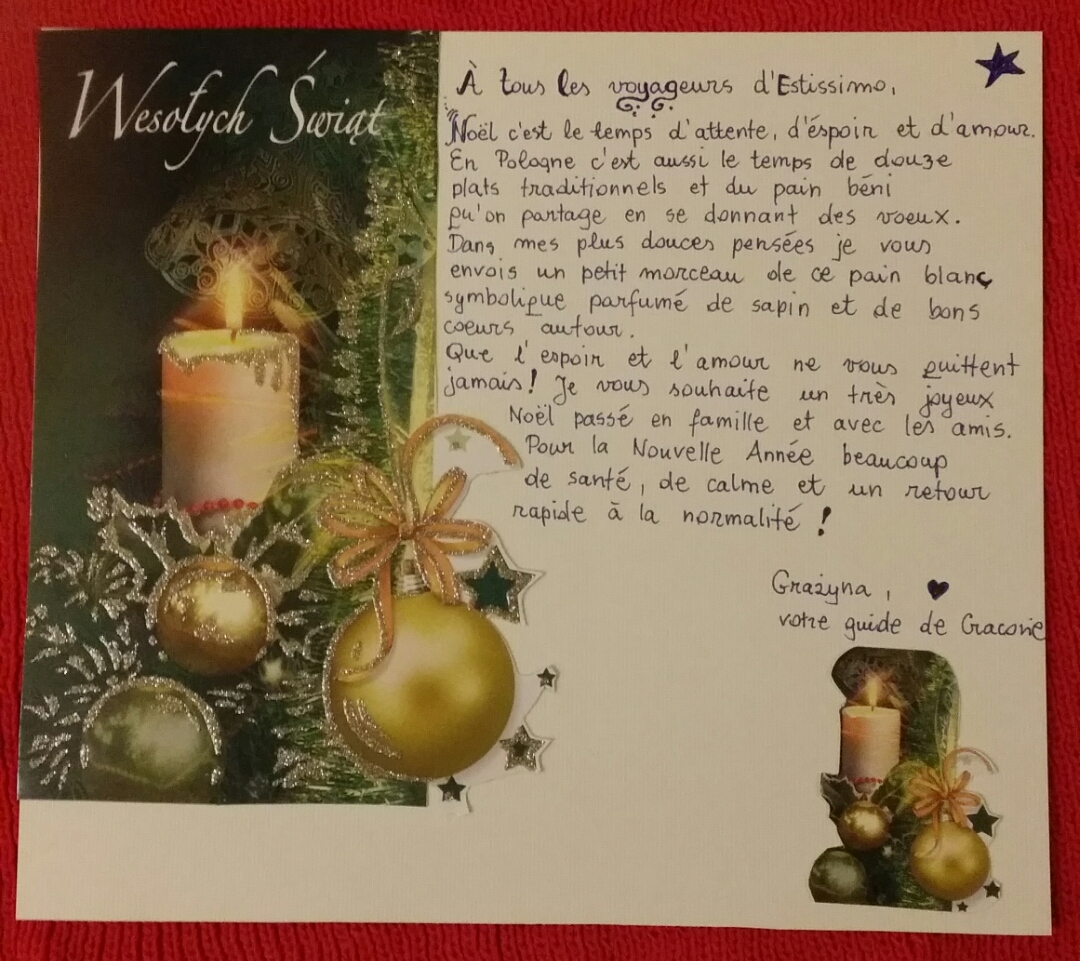 Wesołych Świąt
À tous les voyageurs d'Estissimo,
Noël c'est le temps d'attente, d'éspoir et d'amour.
En Pologne c'est aussi le temps de douze
plats traditionnels et du pain béni
qu'on partage en se donnant des voeux.
Dans mes plus douces pensées je vous
envois un petit morceau de ce pain blanc
symbolique parfumé de sapin et de bons
coeurs autour.
Que l'espoir et l'amour ne vous quittent
jamais! Je vous souhaite un très joyeux
Noël passé en famille et avec les amis.
Pour la Nouvelle Année beaucoup
de santé, de calme et un retour
rapide à la normalité !
Grażyna,
votre guide de Cracovie